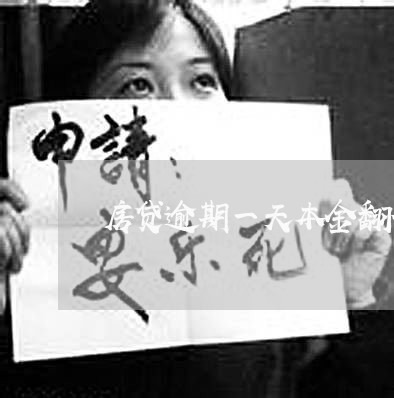 申請：
房贷逾期一天本金翻
安乐死